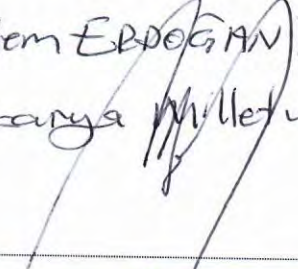 em ERDOĞAN
carya Millet